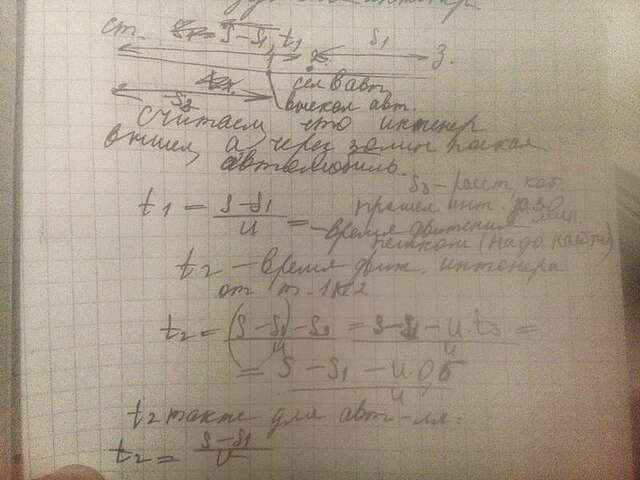 инженер.
ст. S-S1, t1 S1 З.
1 2
сел в авт.
S3 выехал авт.
Считаем, что инженер
вышел, а через 30 мин поехал
автомобиль.
S3 - расст, кот.
t1 = S-S1 / u = прошел инж. за 30 мин.
- время движения
пешком (надо найти)
t2 - время движ. инженера
от т. 1 к 2
t2 = (S-S1)-S3 / u = S-S1-u·t3 / u =
= S-S1-u·0,5 / u
t2 также для авт-ля.
t2 = S-S1 / v